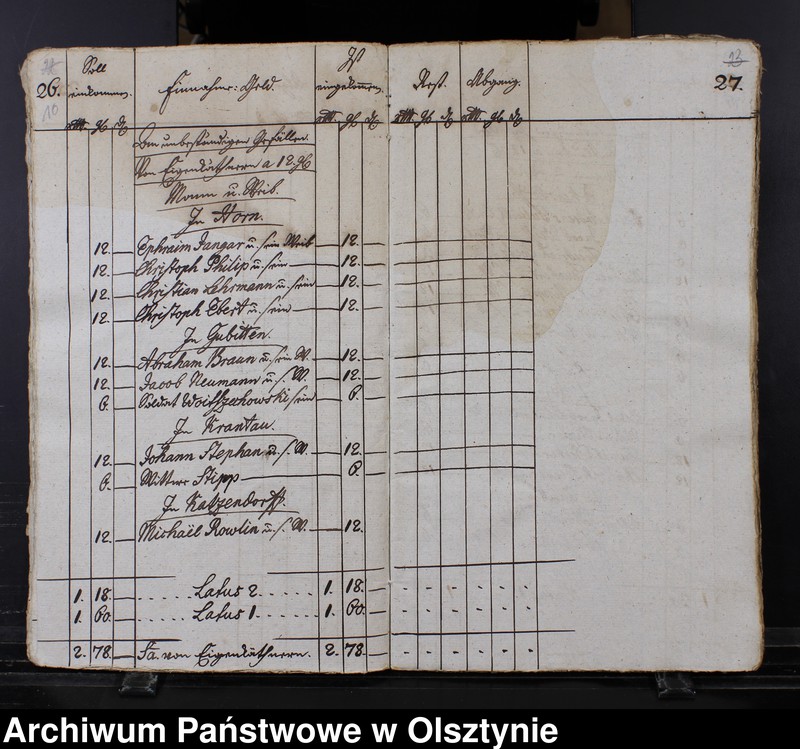 26. Soll einkommen. Einnahme: Geld. Ist eingekommen. Rest. Abgang. 27.
Rtl. gl. d. Rtl. gl. d. Rtl. gl. d. Rtl. gl. d.
An unbeständigen Gefällen.
Von Eigenkäthnern a 12. gl.
Mann u. Weib.
In Horn.
12. — Ephraim Jangar u. sein Weib — 12. —
12. — Christoph Philip u. sein — 12. —
12. — Christian Lehrmann u. sein — 12. —
12. — Christoph Ebert u. sein — 12. —
In Gubitten.
12. — Abraham Braun u. sein W. — 12. —
12. — Jacob Neumann u. s. W. — 12. —
6. — Soldat sein — 6. —
In Krantau.
12. — Johann Stephan u. s. W. — 12. —
6. — Wittwe Stipp — 6. —
In Katzendorff.
12. — Michaël Rowlin u. s. W. — 12. —
1. 18. — Latus 2. 1. 18. —
1. 60. Latus 1. 1. 60.
2. 78. — Sa. von Eigenkäthnern. 2. 78. —
Archiwum Państwowe w Olsztynie